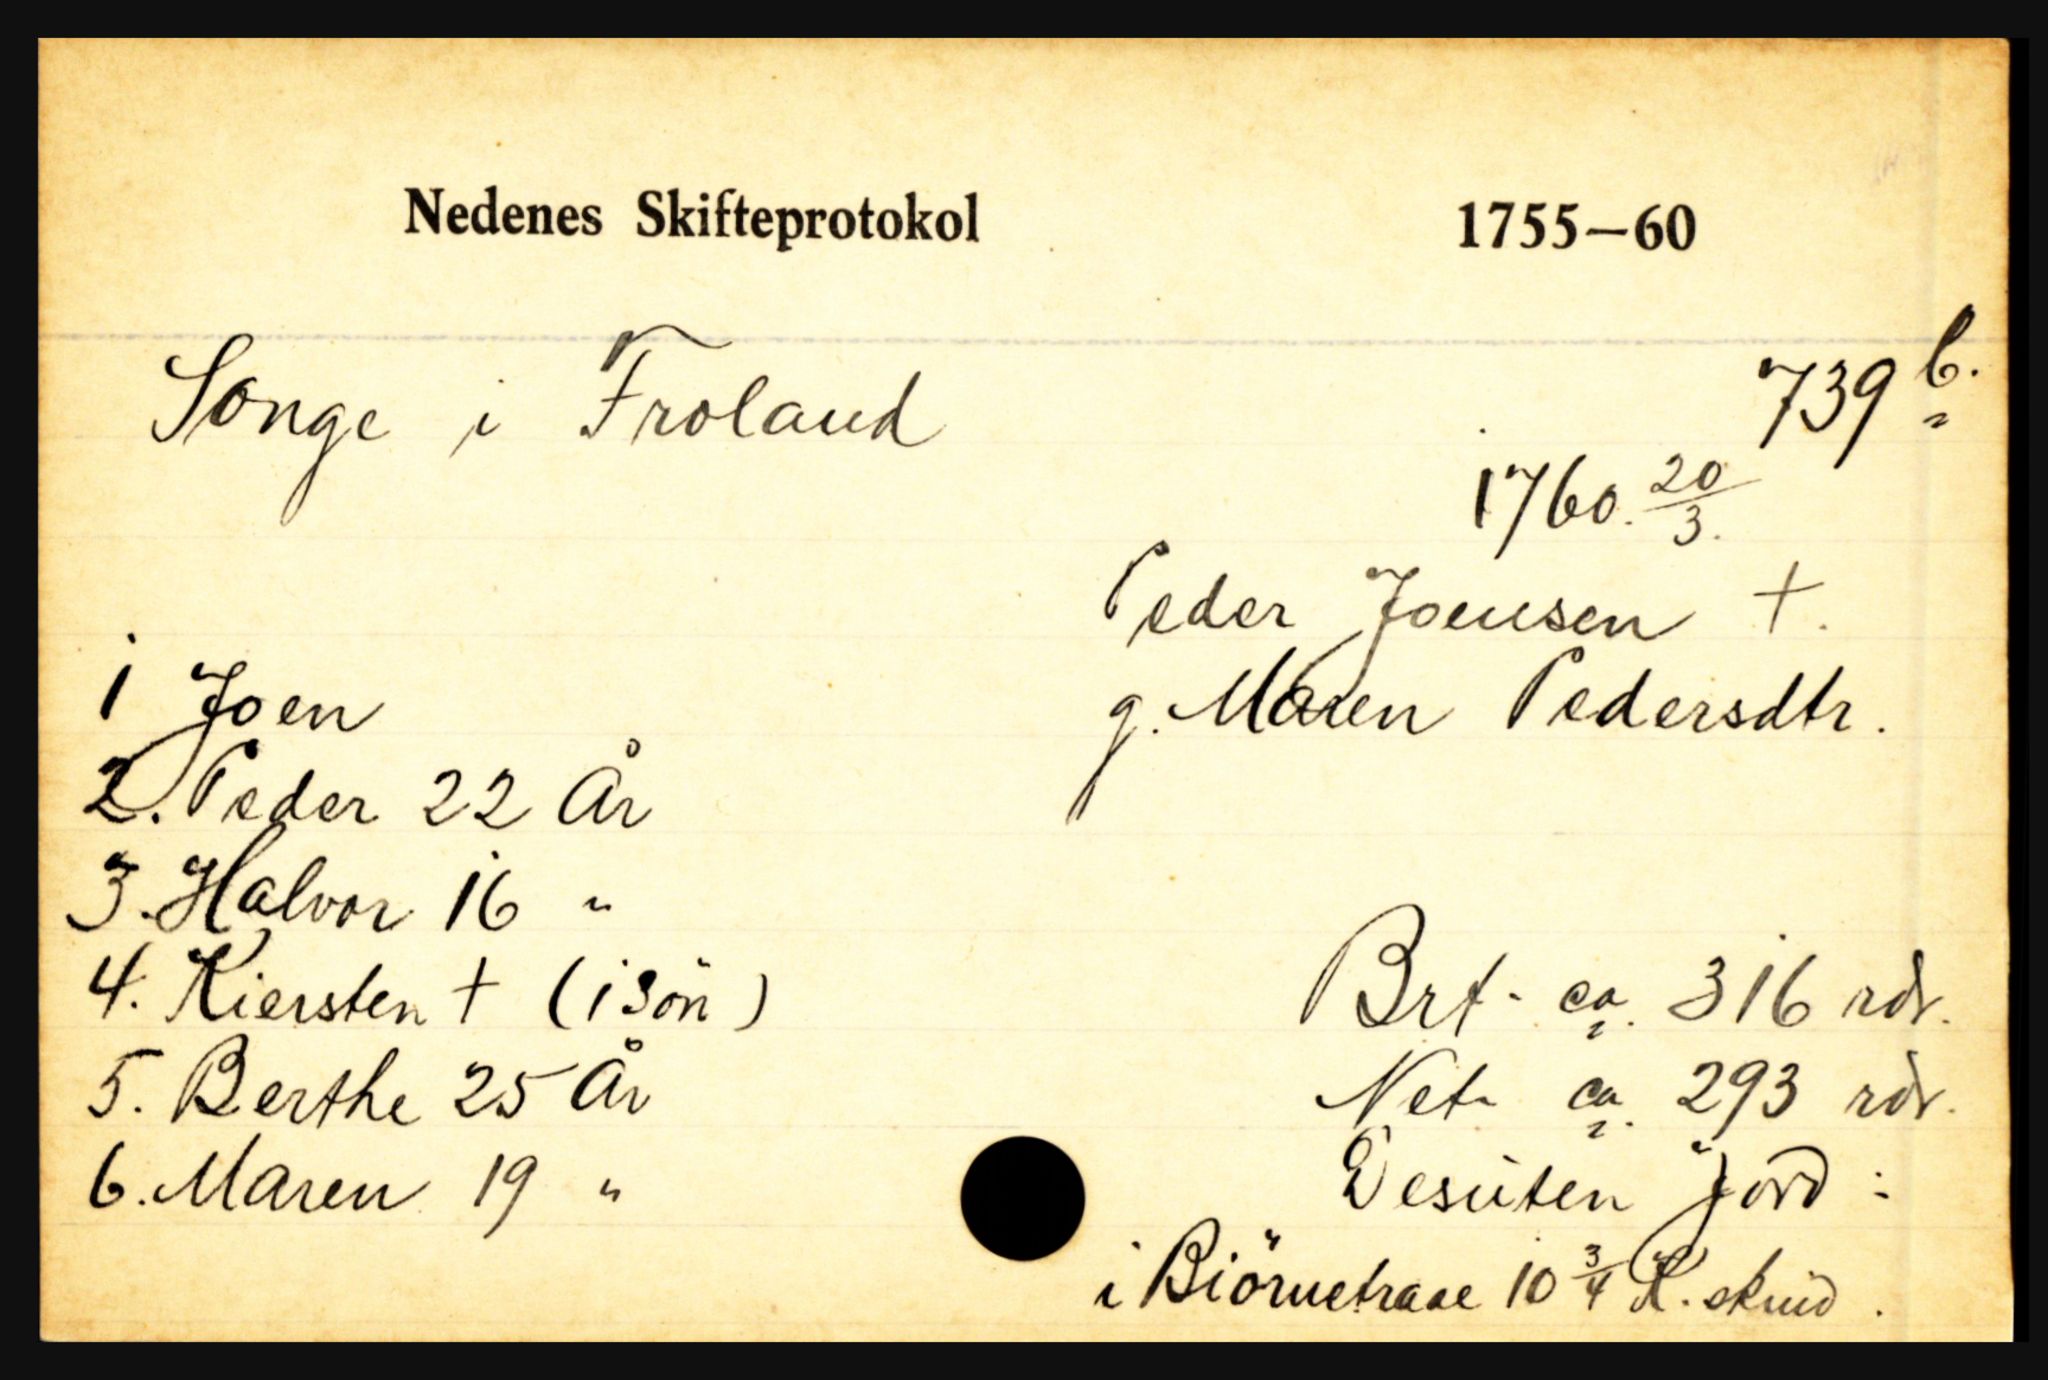 Nedenes Skifteprotokol 1755—60
Songe i Froland 739 b.
1760. 20/3.
Peder Joensen +.
g. Maren Pedersdtr.
1 Joen
2. Peder 22 År
3. Halvor 16 "
4. Kiersten + (1 sön)
5. Berthe 25 År
6. Maren 19 "
Brt. ca. 316 rdr.
Net. ca. 293 rdr.
Desuten Jord :
i Biörnetraae 10 3/4 K. skind.